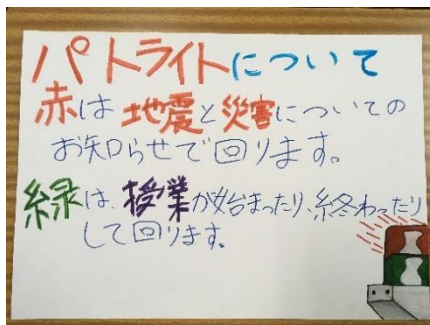 パトライトについて
赤は地震と災害についての
お知らせで回ります。
緑は、授業が始まったり、終わったり
して回ります。